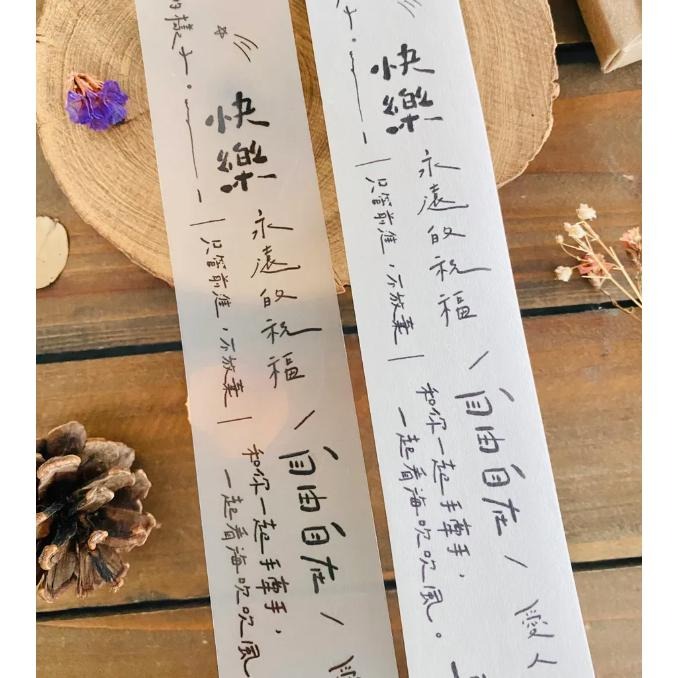 的樣子。
快樂
永遠的祝福
只管前進，不放棄
自由自在
和你一起手牽手，
一起看海吹吹風
的樣子。
快樂
永遠的祝福
只管前進，不放棄
自由自在
和你一起手牽手，
一起看海吹吹風。